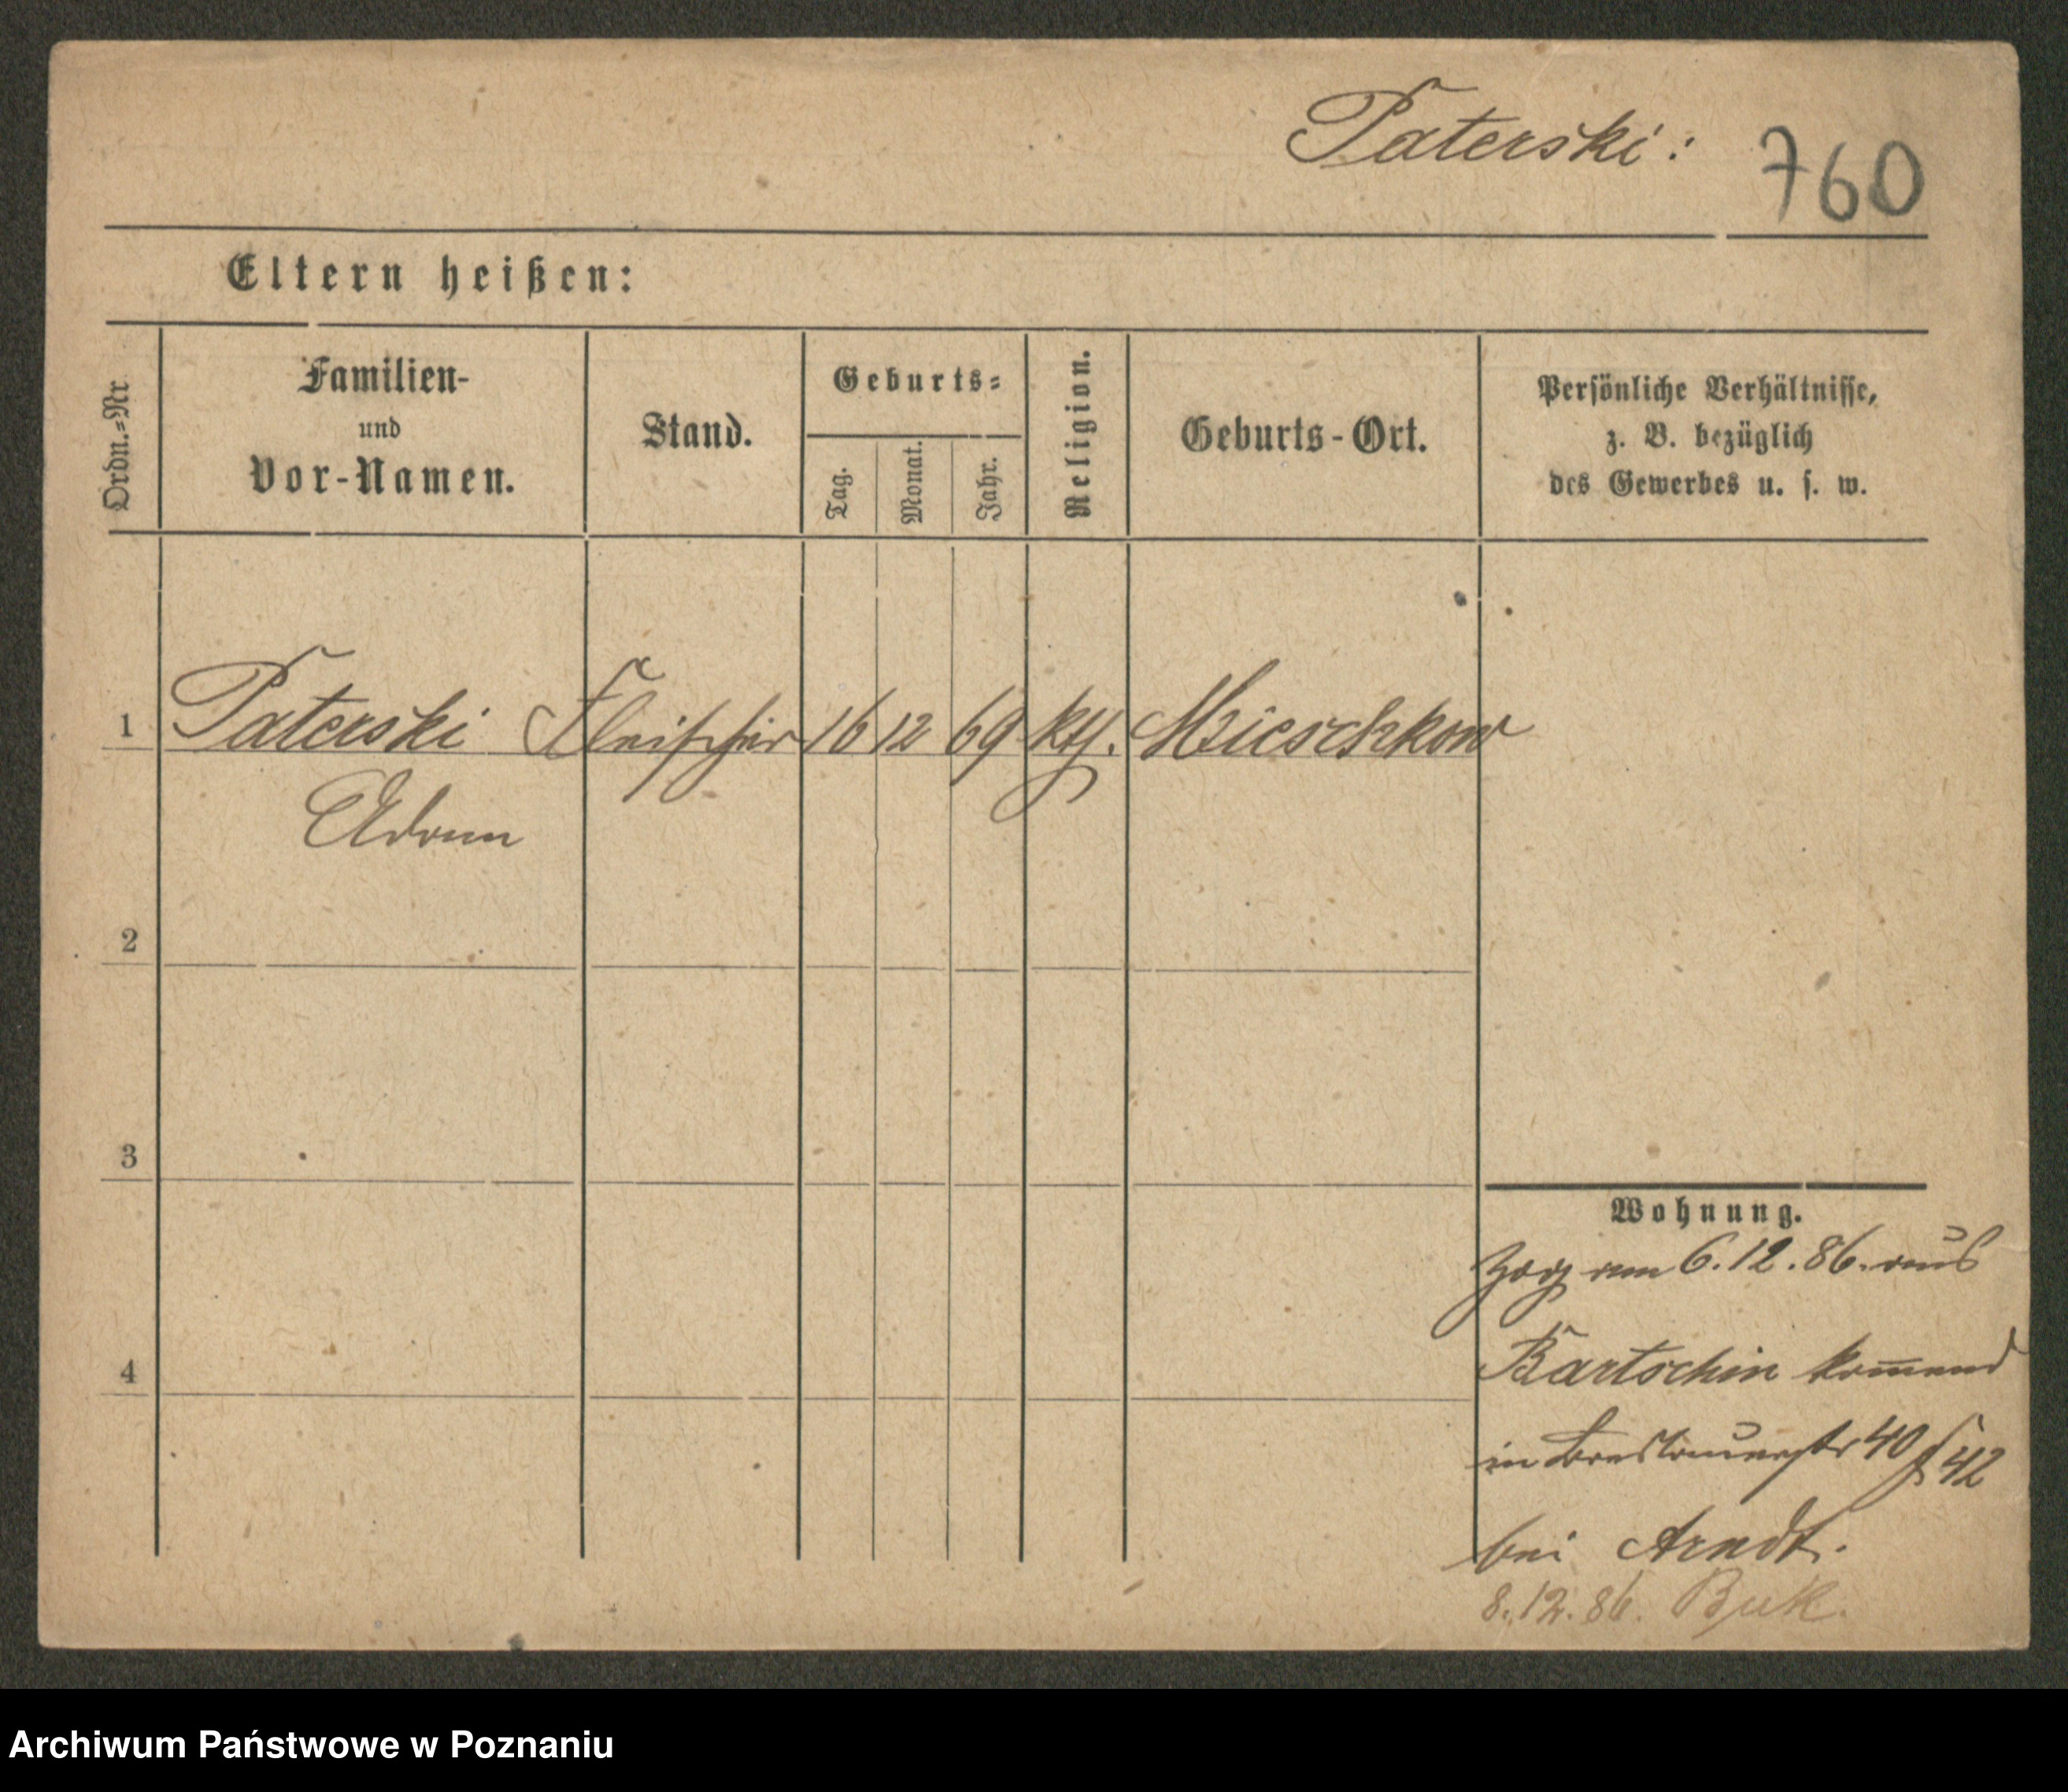 Paterski: 760
Eltern heißen:
Ordn.-Nr.
Familien-
und
Vor-Namen.
Stand.
Geburts-
Tag.
Monat.
Jahr.
Religion.
Geburts-Ort.
Persönliche Verhältnisse,
z. B. bezüglich
des Gewerbes u. s. w.
1 Paterski Fleischer 16 12 69 kth. Mieschkow
Adam
2
3
4
Wohnung.
Zog am 6.12.86. aus
Bartschin kom̅end
in Breslauerstr 40
42
bei Arndt.
8.12.86. Buk.
Archiwum Państwowe w Poznaniu